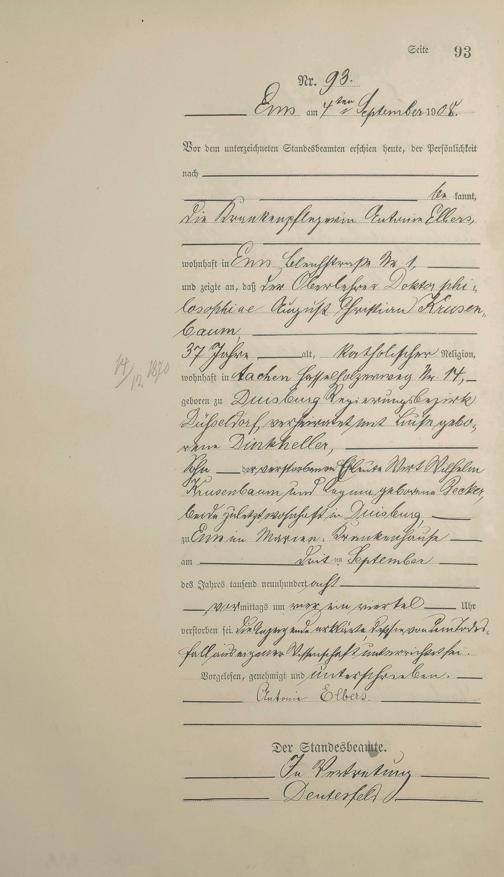 Seite 93
Nr. 93.
Ems am 4ten September 1908.
Vor dem unterzeichneten Standesbeamten erschien heute, der Persönlichkeit
nach
be kannt,
die Krankenpflegerin Antonie Elbers,
wohnhaft in Ems, Bleichstraße Nr. 1,
und zeigte an, daß der Oberlehrer Doktor phi-
losophiae August Christian Krusen-
baum,
37 Jahre alt, katholischer Religion,
14/12 1870
wohnhaft in Aachen Hasselholzerweg Nr. 14,
geboren zu Duisburg Regierungsbezirk
Düsseldorf, verheiratet mit Luise gebo-
rene Dinkheller,
Sohn der verstorbenen Eheleute Wirt Wilhelm
Krusenbaum und Regina geborene Becker,
beide zuletzt wohnhaft in Duisburg
zu Ems im Marien-Krankenhause
am Dritten September
des Jahres tausend neunhundert acht
vormittags um ein viertel Uhr
verstorben sei. Die Anzeigende erklärte, daß sie von dem Todes-
fall aus eigener Wissenschaft unterrichtet sei.
Vorgelesen, genehmigt und unterschrieben.
Antonie Elbers
Der Standesbeamte.
In Vertretung